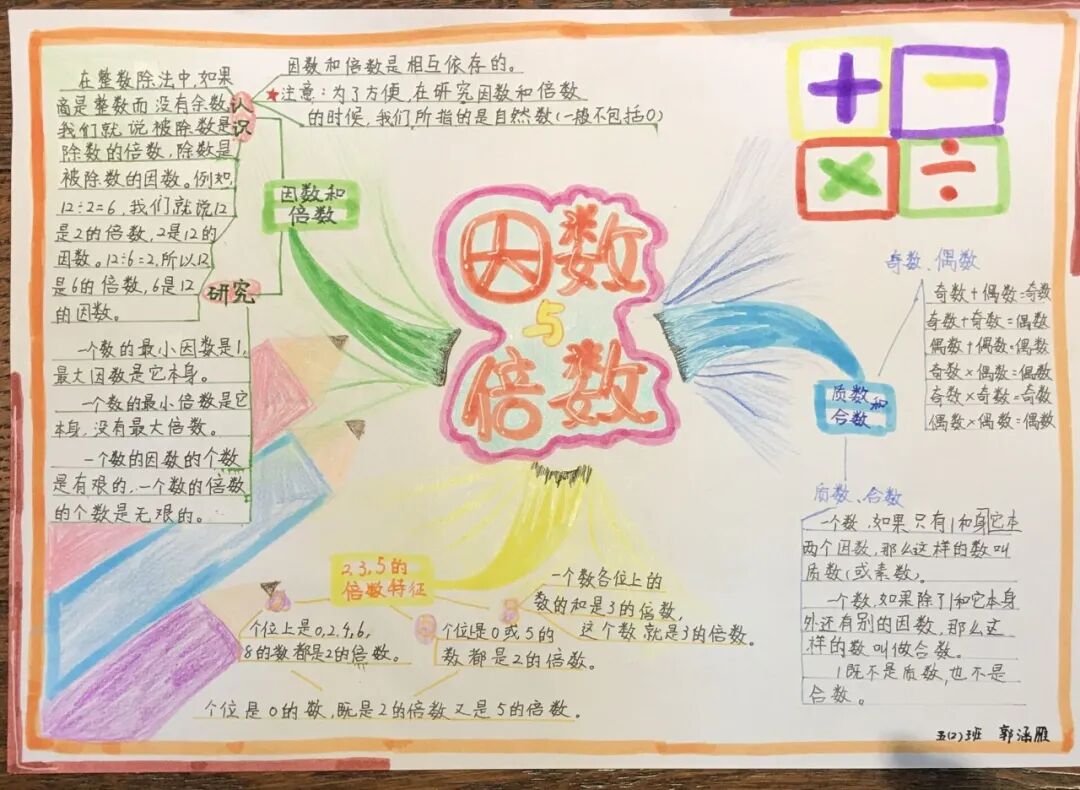 因数
与
倍数
因数和
倍数
认
识
在整数除法中,如果
商是整数而没有余数,
我们就说被除数是
除数的倍数,除数是
被除数的因数。例如,
12÷2=6,我们就说12
是2的倍数,2是12的
因数。12÷6=2,所以12
是6的倍数,6是12
的因数。
因数和倍数是相互依存的。
★注意:为了方便,在研究因数和倍数
的时候,我们所指的是自然数(一般不包括0)
研究
一个数的最小因数是1,
最大因数是它本身。
一个数的最小倍数是它
本身,没有最大倍数。
一个数的因数的个数
是有限的,一个数的倍数
的个数是无限的。
+
−
×
÷
质数和
合数
奇数、偶数
奇数+偶数=奇数
奇数+奇数=偶数
偶数+偶数=偶数
奇数×偶数=偶数
奇数×奇数=奇数
偶数×偶数=偶数
质数、合数
一个数,如果只有1和身它本
两个因数,那么这样的数叫
质数(或素数)。
一个数,如果除了1和它本身
外还有别的因数,那么这
样的数叫做合数。
1既不是质数,也不是
合数。
2,3,5的
倍数特征
个位上是0,2,4,6,
8的数都是2的倍数。
个位是0或5的
数都是2的倍数。
一个数各位上的
数的和是3的倍数,
这个数就是3的倍数。
个位是0的数,既是2的倍数又是5的倍数。
郭涵雁